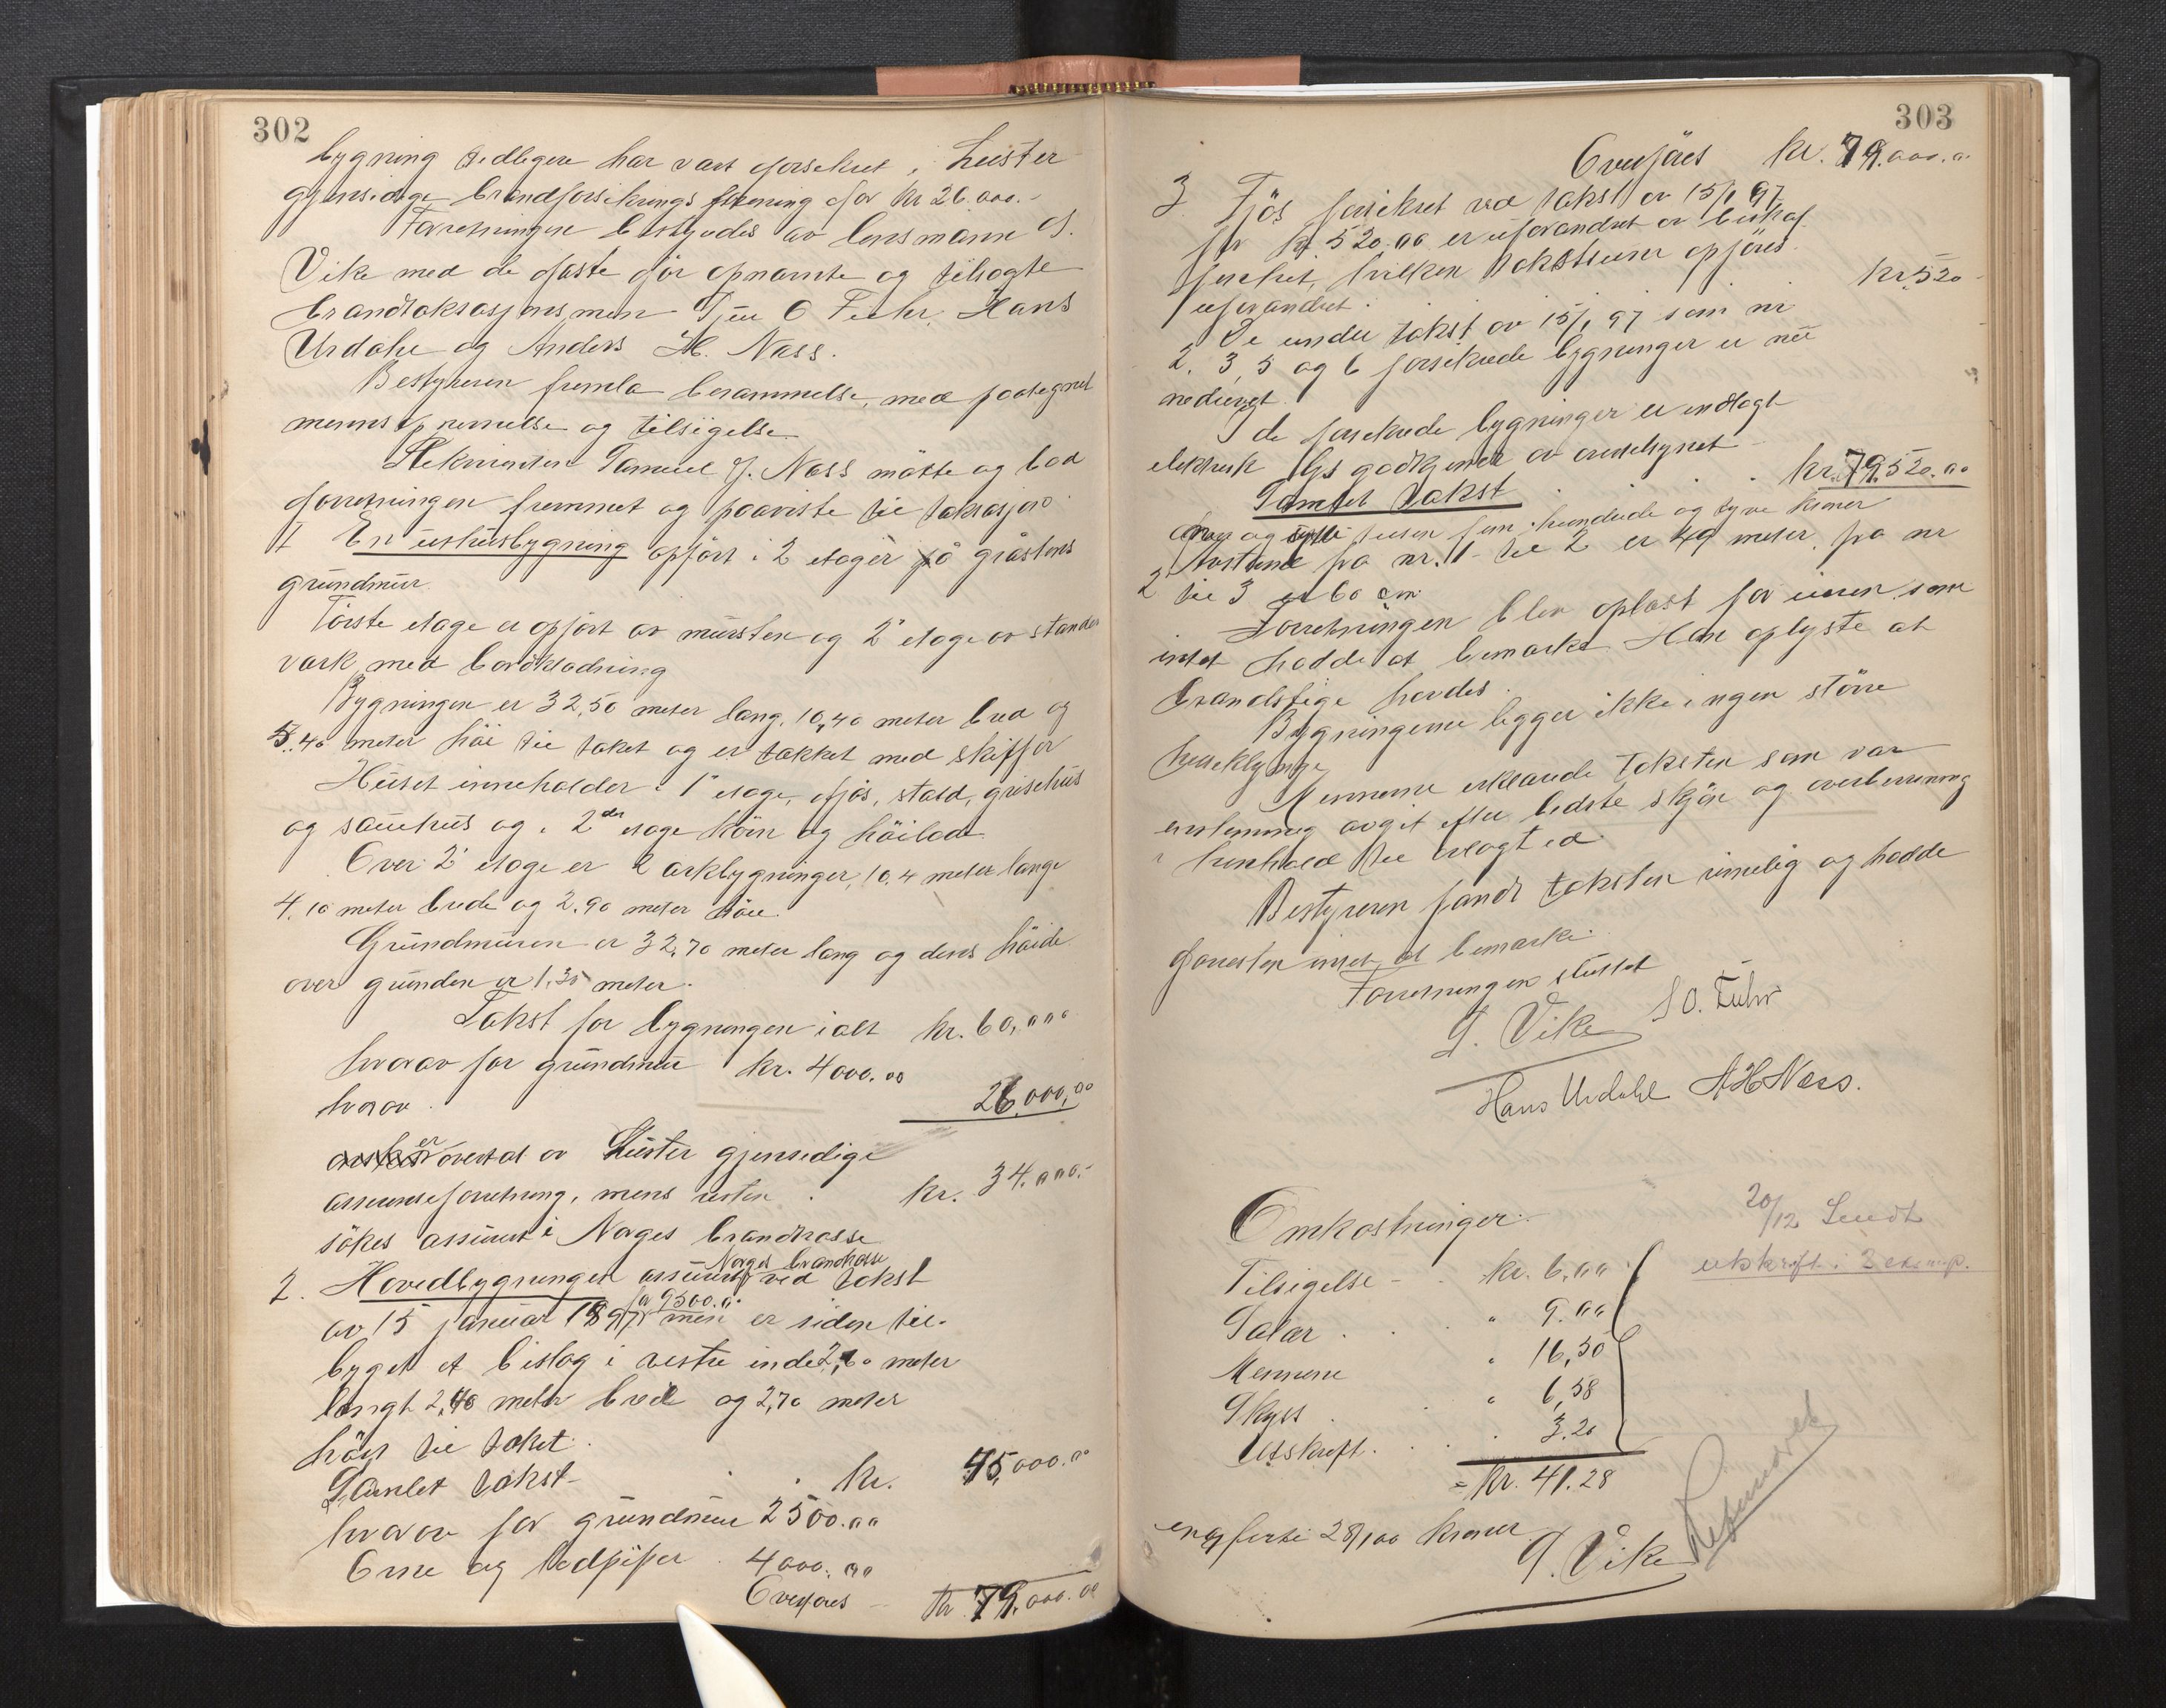 302
bygning tidligere har vært forsikret i Luster
gjensidige brandforsikrings forening for kr 26.000.-
Forretningen bestyrdes av lensmann S.
Vike med de faste før opnævnte og tilsagte
brandtaksasjonsmenn O Fuhr, Hans
Urdahl og Anders H. Næss.
Bestyreren fremla berammelse, med paategnet
menns opnevnelse og tilsigelse
Rekvirenten Samuel J. Næss møtte og bad
forretningen fremmet og paaviste til taksasjon
1 En uthusbygning opført i 2 etager på gråstens
grundmur.
Første etage er opført av mursten og 2' etage av stander
værk med bordklædning
Bygningen er 32,50 meter lang, 10,40 meter bred og
5.40 meter høi til taket og er tækket med skiffer
Huset inneholder i 1' etage, fjøs, stald, grisehus
og sauehus og i 2den etage korn og høilade
Over 2' etage er 2 arkbygninger, 10.4 meter lange
4.10 meter brede og 2.90 meter høie.
Grundmuren er 32,70 meter lang og dens høide
over grunden er 1.35 meter.
Takst for bygningen ialt kr. 60,000
hvorav for grundmur kr. 4000.00
hvorav 26,000,00
er overtat av Luster gjensidige
assuranseforretning, mens resten kr. 34.000.-
søkes assurert i Norges brandkasse
Norges brandkasse
2. Hovedbygningen assurert ved takst
for 9500.00
av 15 januar 1897 men er siden til-
bygget et bislag i vestre ende 2,60 meter
langt 2,40 meter bred og 2,70 meter
høit til taket.
Samlet takst kr. 45,000.00
hvorav for grundmur 2500.00
Orne og ledpiper 4000.00
Overføres kr 79.000.00
303
Overføres kr. 79.000.00
3. Fjøs forsikret ved takst av 15/1 97
for kr 520.00 er uforandret av beskaf
fenhet, hvilken takstsum opføres
uforandret. kr. 520
De under takst av 15/1 97 som nr
2, 3, 5 og 6 forsikrede bygninger er nu
nedrevet.
I de forsikrede bygninger er indlagt
elektrisk lys godkjendt av
Samlet takst kr. 79.520.00
og sytti tusen fem hundrede og tyve kroner
Avstand fra nr. 1 til 2 er 49 meter, fra nr
2 til 3 er 60 cm
Forretningen blev oplæst for eieren som
intet hadde at bemerke. Han oplyste at
brandstige havdes.
Bygningerne ligger ikke i nogen større
huseklynge
Mennerne erklærede taksten som var
enstemmig avgit efter bedste skjøn og overbevisning
i henhold til avlagt ed.
Bestyreren fandt taksten rimelig og hadde
forresten intet at bemærke.
Forretningen sluttet
S. Vike S O. Fuhr
Hans Urdahl AHNæss.
Omkostninger.
20/12 Sendt
utskrift i 3 eksemp.
Tilsigelse - kr. 6,00
Salær " 9.00
Mennene " 16,50
Skyss " 6,58
Utskrift 3.20
= Kr. 41.28
en og firti 28/100 kroner
S. Vike